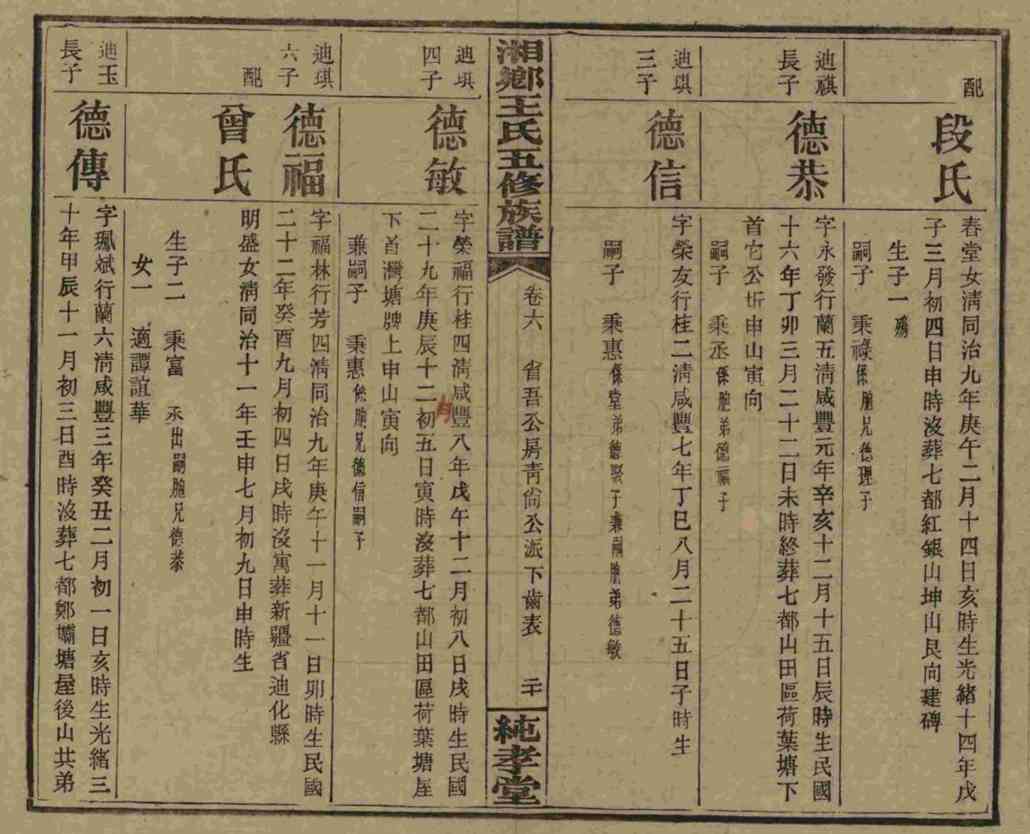 配
段氏
春堂女淸同治九年庚午二月十四日亥時生光緒十四年戊
子三月初四日申時沒葬七都紅銀山坤山艮向建碑
生子一 殤
嗣子 秉祿係胞兄德理子
迪祺
長子
德恭
字永發行蘭五淸咸豐元年辛亥十二月十五日辰時生民國
十六年丁卯三月二十二日未時終葬七都山田區荷葉塘下
首它公坵申山寅向
嗣子 秉丞係胞弟德福子
迪琪
三子
德信
字榮友行桂二淸咸豐七年丁巳八月二十五日子時生
嗣子 秉惠係堂弟德堅子兼嗣胞弟德敏
湘鄉王氏五修族譜
卷六
省吾公房靑尙公派下齒表
二十
純孝堂
迪琪
四子
德敏
字榮福行桂四淸咸豐八年戊午十二月初八日戌時生民國
二十九年庚辰十二月初五日寅時沒葬七都山田區荷葉塘屋
下首灣塘牌上申山寅向
兼嗣子 秉惠係胞兄德信嗣子
迪琪
六子
德福
字福林行芳四淸同治九年庚午十一月十一日卯時生民國
二十二年癸酉九月初四日戌時沒寓葬新疆省迪化縣
配
曾氏
明盛女淸同治十一年壬申七月初九日申時生
生子二 秉富 丞出嗣胞兄德恭
女一 適譚誼華
迪玉
長子
德傳
字珮斌行蘭六淸咸豐三年癸丑二月初一日亥時生光緒三
十年甲辰十一月初三日酉時沒葬七都鄭壩塘屋後山共弟